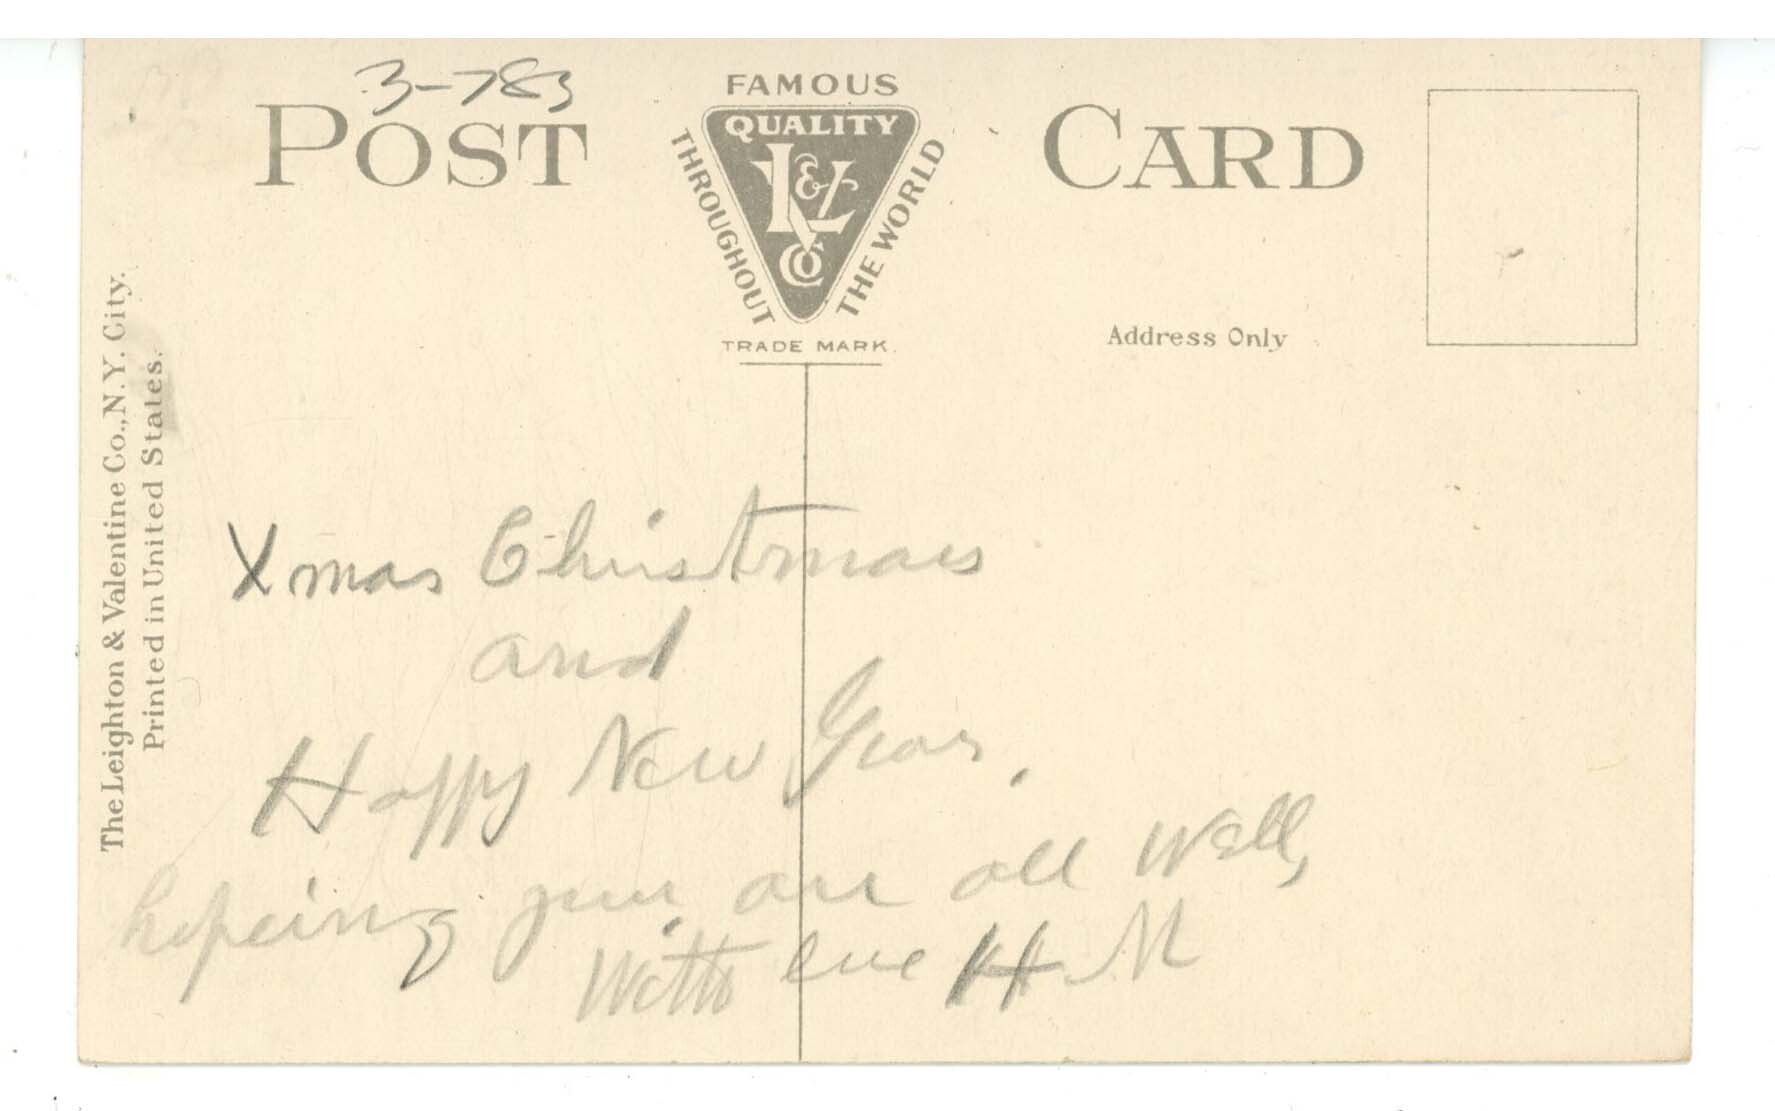 3-783
POST CARD
FAMOUS
QUALITY
THROUGHOUT
THE WORLD
L&V
Co
TRADE MARK.
Address Only
The Leighton & Valentine Co., N.Y. City.
Printed in United States.
Xmas Christmas
and
Happy New Year.
hopeing you are all Well,
With love H M